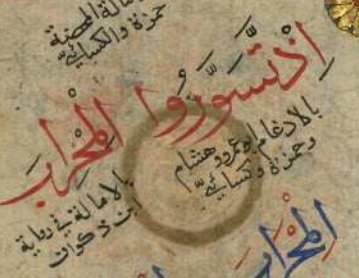 بالامالة المحضة
حمزة والكسائي
اِذْ تَسَوَّرُوا الْمِحْرَابَ
بالادغام ابو عمرو وهشام
وحمزة وكسائي
بالامالة في رواية
ابن ذكوان
المحراب